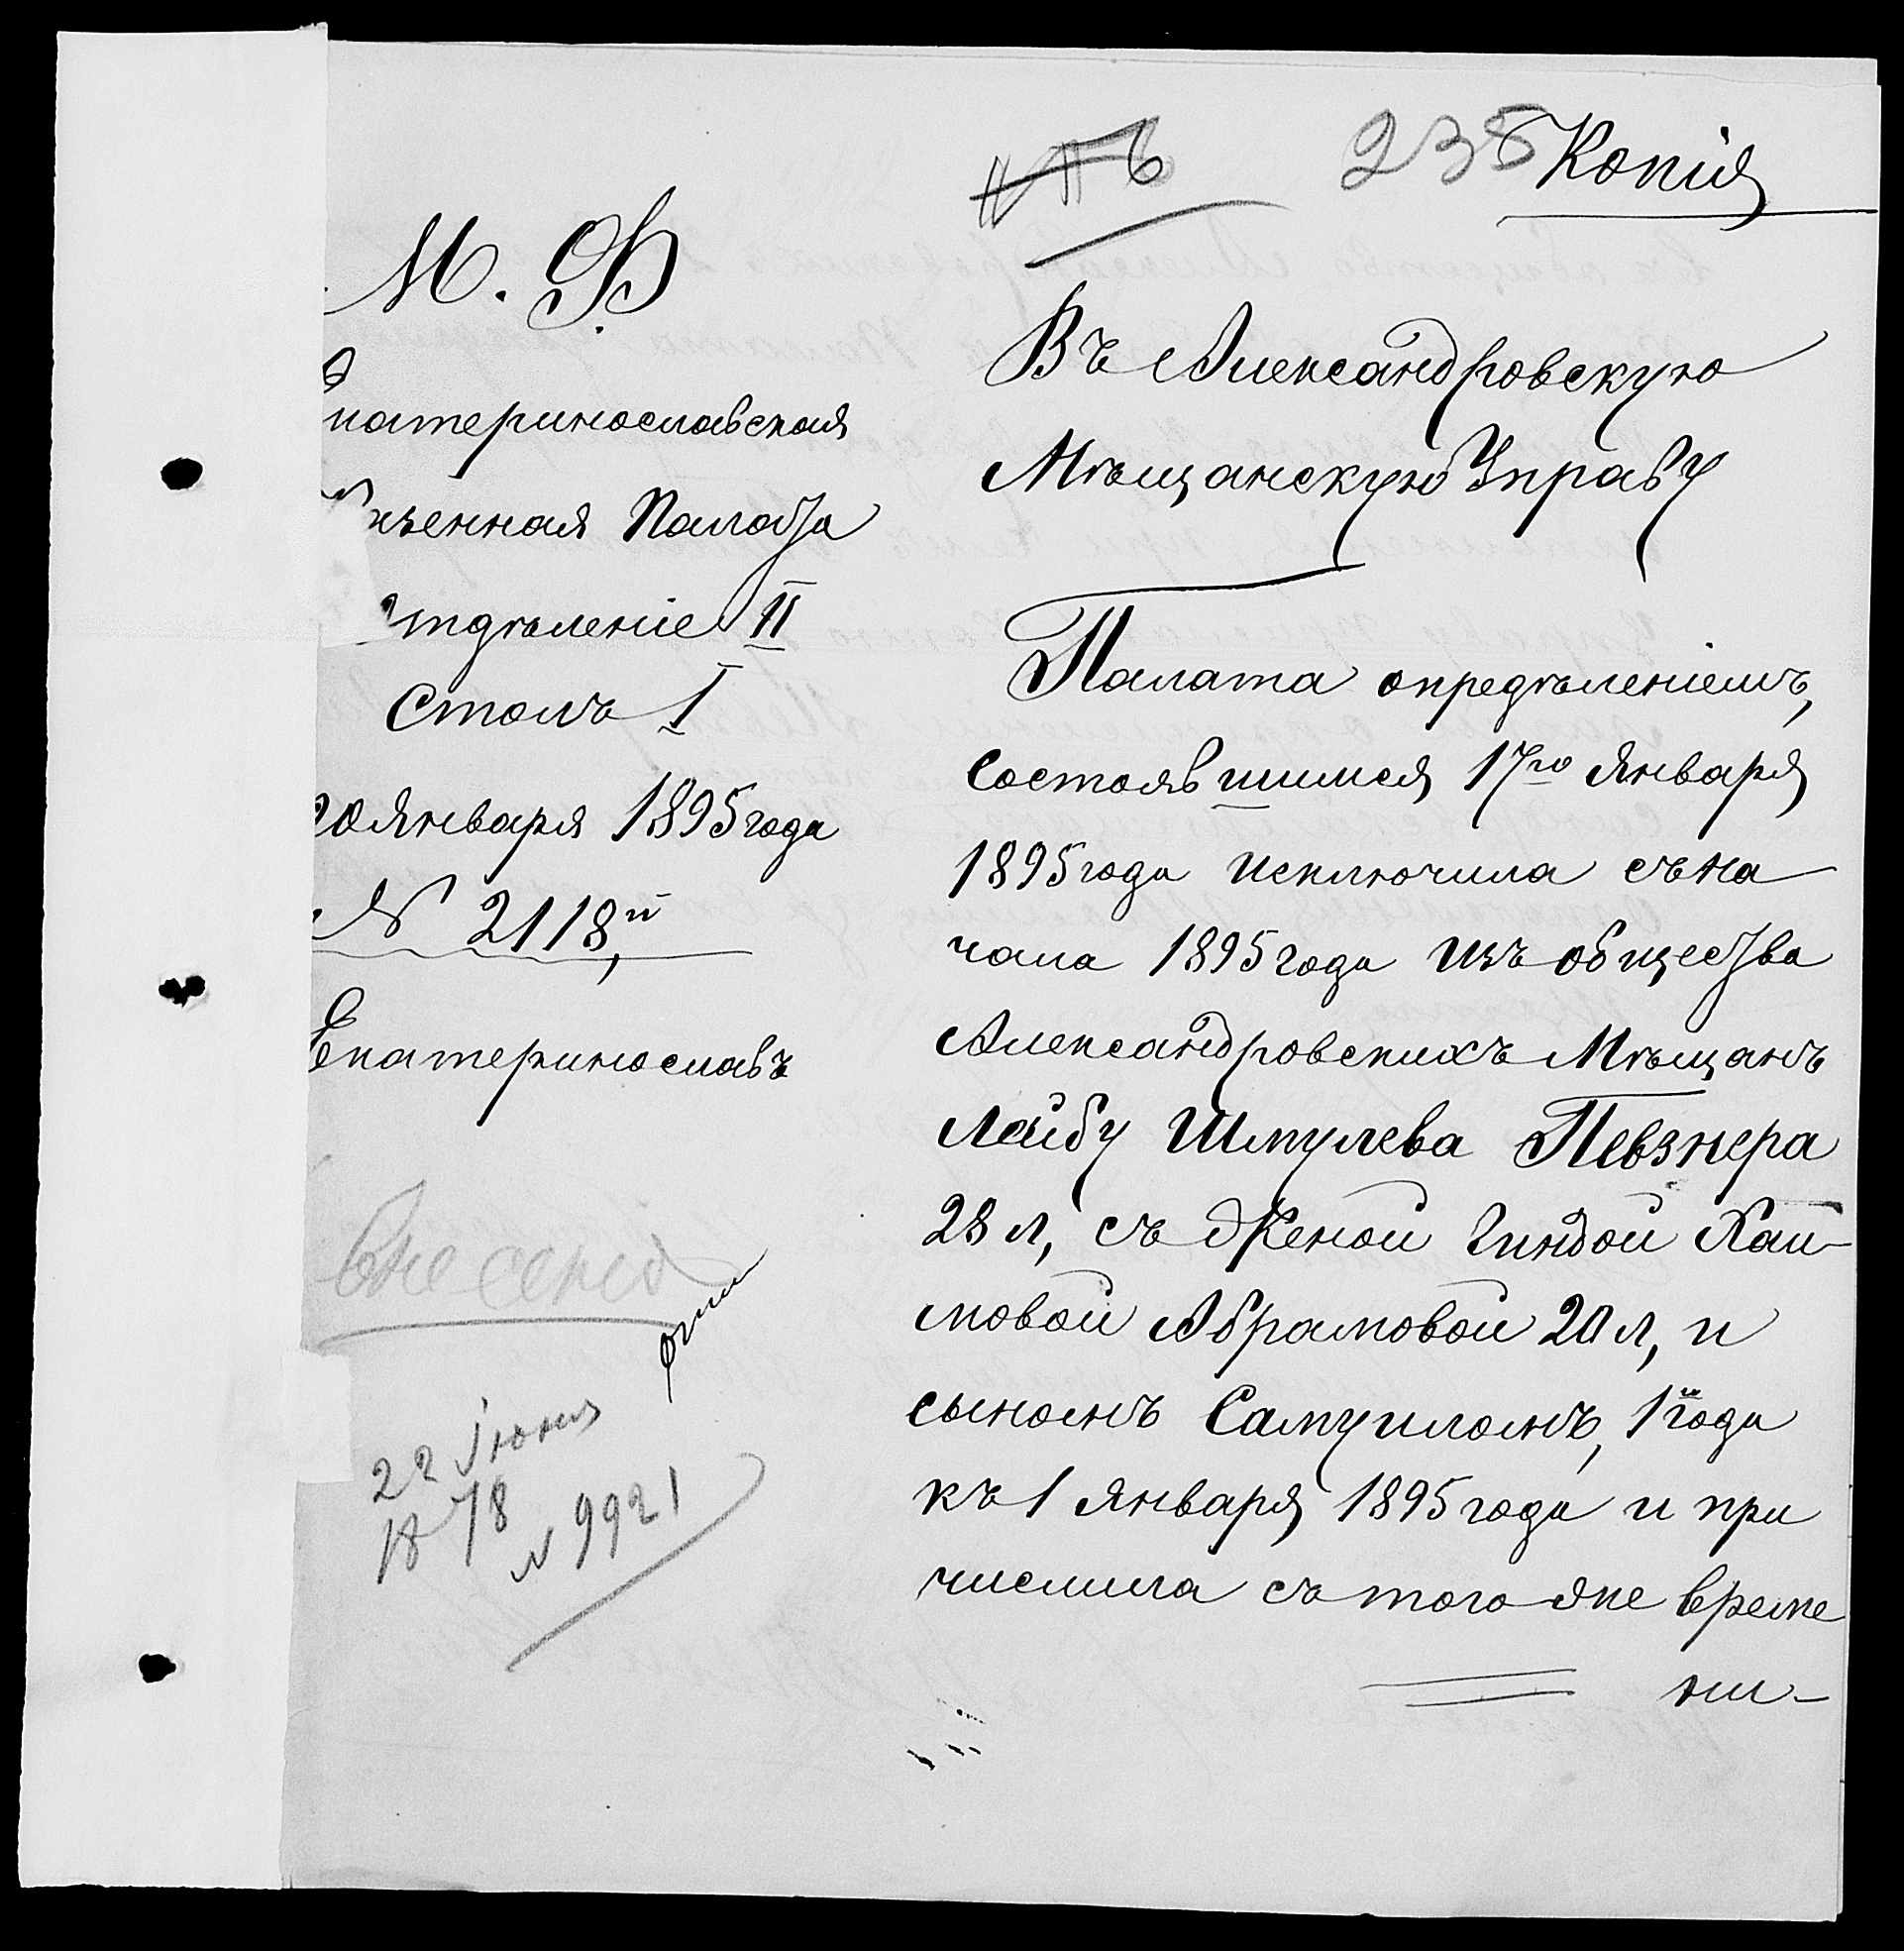 235 Копія
М. Ф.
Екатеринославская
Казенная Палата
Отдѣленіе II
Столъ I
20 Января 1895 года
№ 2118,й
Екатеринославъ
Въ Александровскую
Мѣщанскую Управу
Палата опредѣленіемъ,
состоявшимся 17го Января
1895 года исключила съ на
чала 1895 года изъ общества
Александровскихъ Мѣщанъ
Лейбу Шмулева Певзнера
28 л, съ женой Гиндой Хаи-
мовой Абрамовой 20 л, и
сыномъ Самуиломъ, 1 года
къ 1 Января 1895 года и при
числила съ того же време
ни-
22 Июня
1878
№ 9921